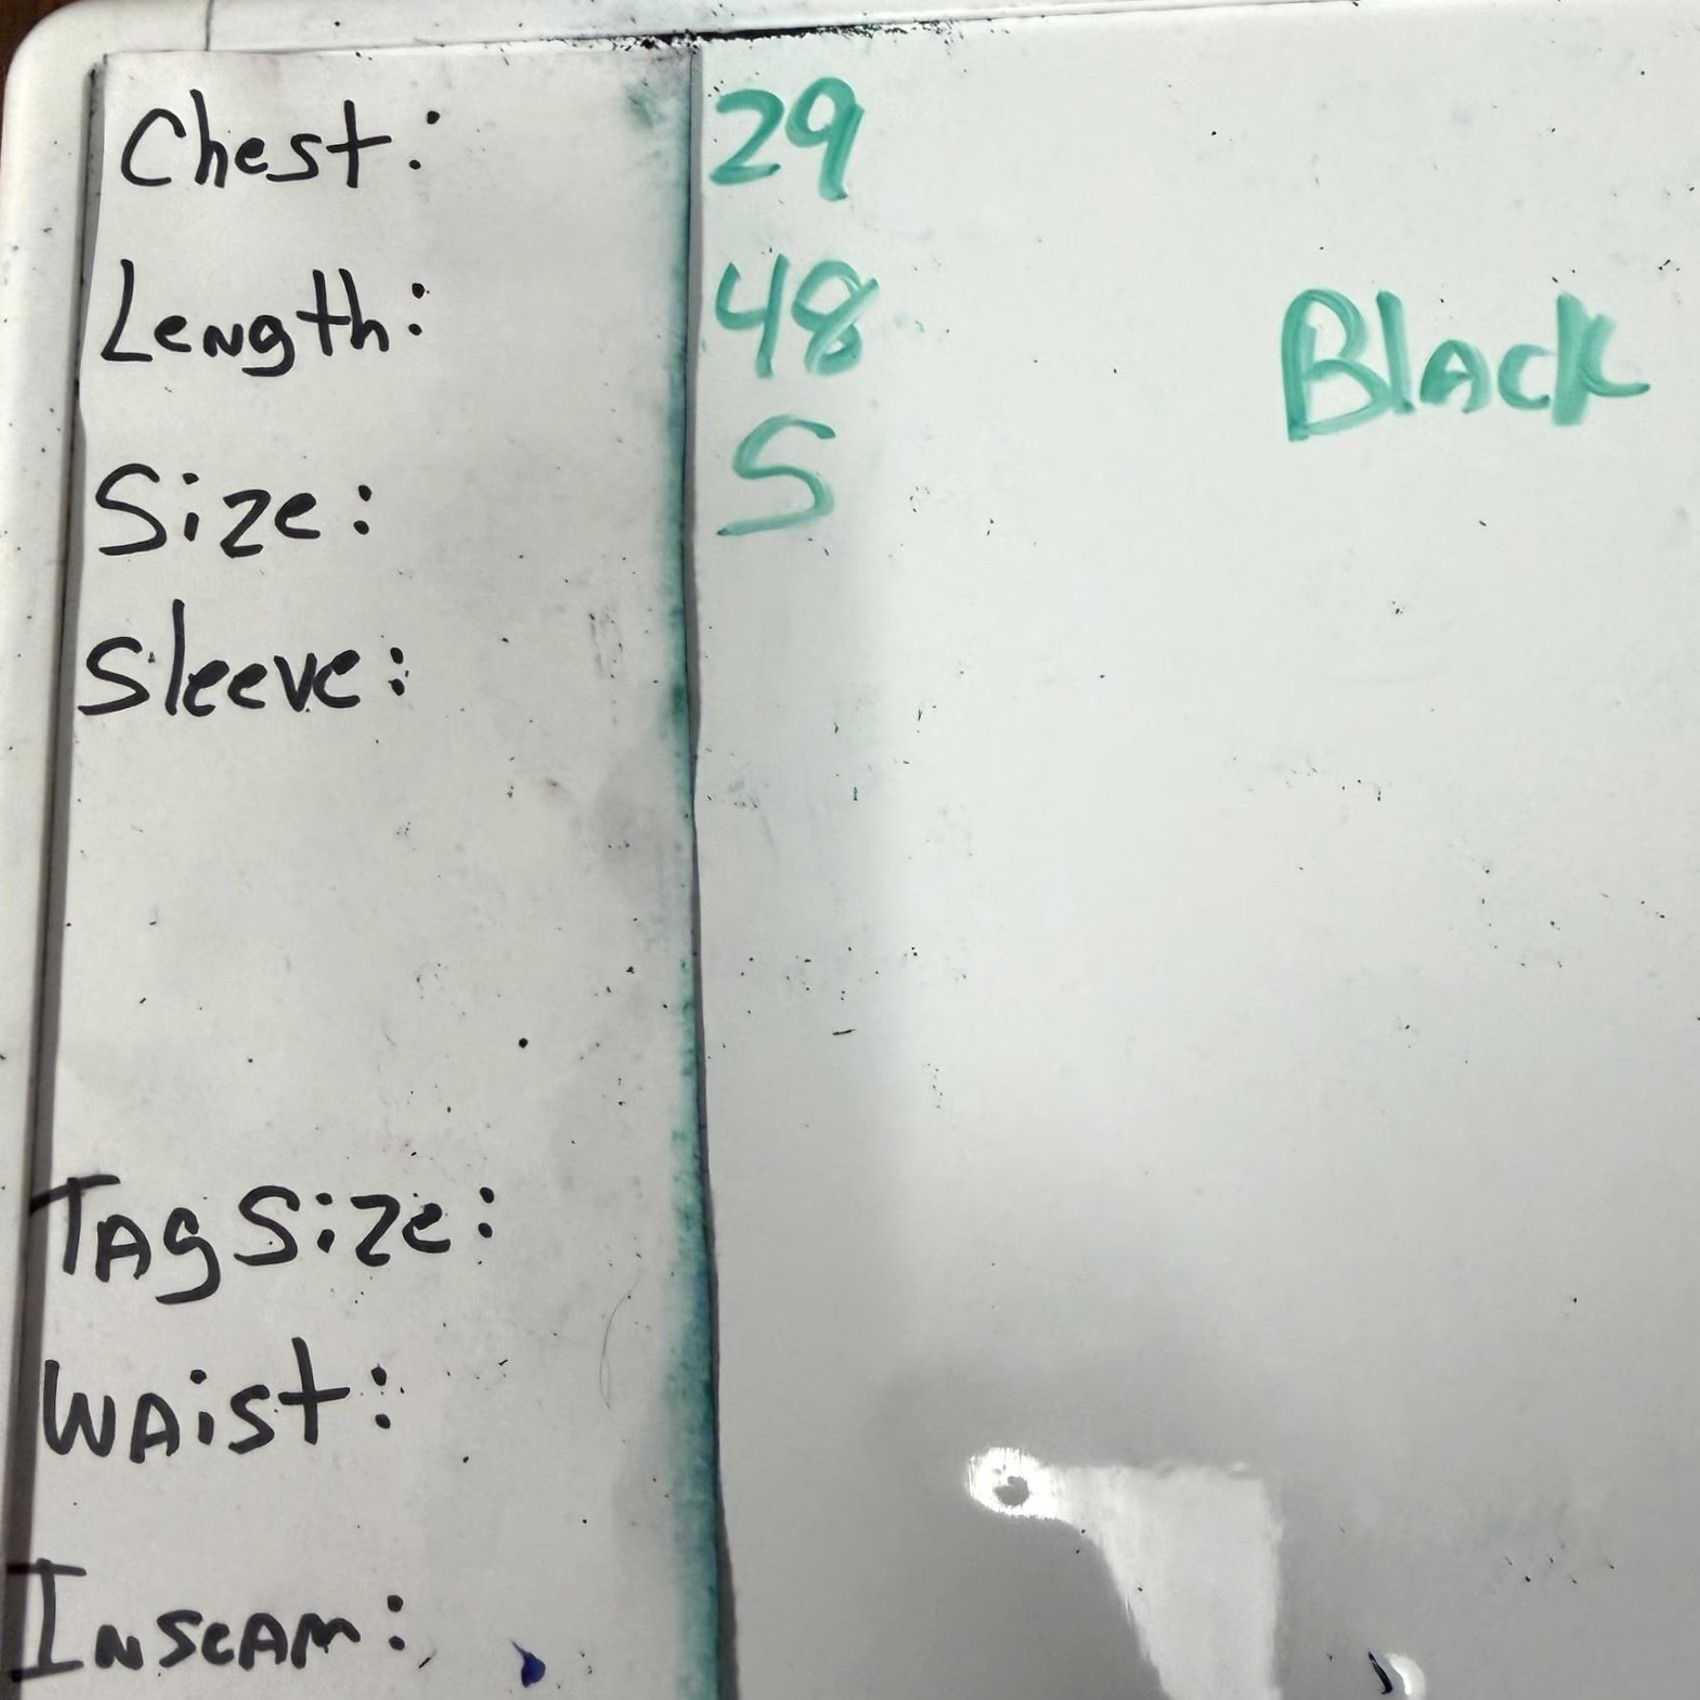 Chest: 29
Length: 48
Black
Size: S
Sleeve:
Tag Size:
Waist:
Inseam: